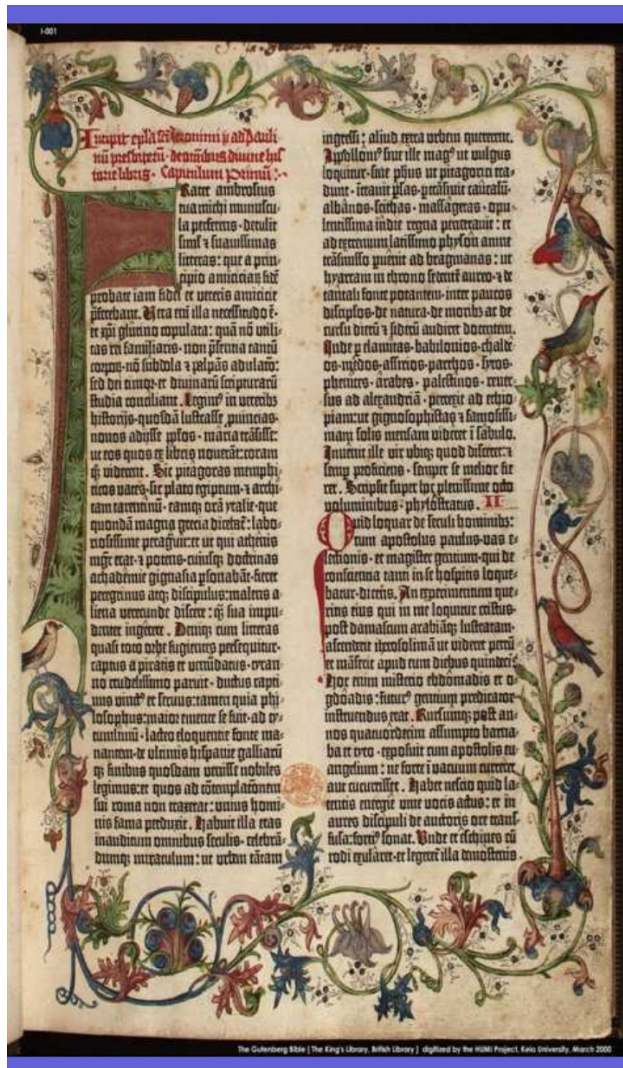 I-001
Incipit epistola sancti iheronimi ad pauli
nū presbiterū · de omnibus divine his
torie libris · Capitulum primū :·
Frater ambrosius
tua michi munuscu-
la perferens · detulit
simul ⁊ suavissimas
litteras : que a prin-
cipio amiciciar̄ fidē
probate iam fidei et veteris amicicie
p̄ferebant. Vera eni̅ illa necessitudo ē·
et xp̄i glutino copulata : quā nō utili-
tas rei familiaris · non p̄sentia tantū
corpor̄ · nō subdola ⁊ palpās adulatō :
sed dei timor et divinarū scripturarū
studia conciliant. Legimꝰ in veteribꝫ
historijs · quosdā lustrasse ꝓvincias ·
novos adijsse pp̄los · maria trāsisse :
ut eos quos ex libris noverāt : coram
qꝫ viderent. Sic pitagoras memphi-
ticos vates · sic plato egiptum · ⁊ archi-
tam tarentinū · eamqꝫ orā ytalie · que
quondā magna grecia dicebat᷑ : labo-
riosissime peragᷓvit : et ut qui athenis
mgr̄ erat · ⁊ potens · cuiusqꝫ doctrinas
achademie gignasia ꝑsonabāt · fieret
peregrinus atqꝫ discipulus : malens a-
liena verecunde discere : qᷓꝫ sua impu-
denter ingerere. Deniqꝫ cum litteras
quasi toto orbe fugientes persequitur ·
captus a piratis et venūdatus · tyran-
no crudelissimo paruit · ductus capti-
vus vinctꝰ et servus : tamen quia phi-
losophus : maior emente se fuit · ad ty-
tumlivium · lacteo eloquentie fonte ma-
nantem · de ultimis hispanie galliarū
qꝫ finibus quosdam venisse nobiles
legimus : et quos ad cōtemplacōnem
sui roma non traxerat : unius homi-
nis fama perduxit. Habuit illa etas
inauditum omnibus seculis · celebrā-
dumqꝫ miraculum : ut urbem tātam
ingressi : aliud extra urbem quererent.
Apolloniꝰ sive ille magꝰ ut vulgus
loquitur · sive ph̄us ut pitagorici tra-
dunt · intravit p̄sas · ꝑtrāsivit caucasū
albānos · scithas · massagetas · opu-
lentissima indie regna penetravit : et
ad extremum latissimo physon amne
trāsmisso ꝑvenit ad bragmanas : ut
hyarcam in throno sedentē aureo · ⁊ de
tantali fonte potantem · inter paucos
discipl̄os · de natura · de moribꝫ ac de
cursu dierū ⁊ siderū audiret docentem.
Inde ꝑ elamitas · babilonios · chalde-
os · medos · assirios · parthos · syros ·
phenices · arabes · palestinos · rever-
sus ad alexandriā · perrexit ad ethio-
piam : ut gignosophistas ⁊ famosissi-
mam solis mensam videret ī sabulo.
Invenit ille vir ubiqꝫ quod disceret : ⁊
semꝑ proficiens · semper se melior fie-
ret. Scripsit super hoc plenissime octo
voluminibus · phylostratus. II
Quid loquar de seculi hominibꝫ :
cum apostolus paulus · vas e-
lectionis · et magister gentium · qui de
conscientia tanti in se hospitis loque-
batur · dicens. An experimentum que-
ritis eius qui in me loquitur cristus ·
post damascum arabiāqꝫ lustratam ·
ascenderit iherosolimā ut videret petrū
et māserit apud eum diebus quindecī ·
Hoc enim misterio ebdomadis et o-
gdoadis : futurꝰ gentium predicator
instruendus erat. Rursumqꝫ post an-
nos quatuordecim assumpto barna-
ba et tyto · exposuit cum apostolis eu-
angelium : ne forte ī vacuum curreret
aut cucurrisset. Habet nescio quid la-
tentis energie vive vocis actus : et in
aures discipuli de auctoris ore trans-
fusa : fortiꝰ sonat. Unde et eschines cū
rodi exularet · et legeret᷑ illa demostenis ·
The Gutenberg Bible [ The King's Library, British Library ] digitized by the HUMI Project, Keio University, March 2000